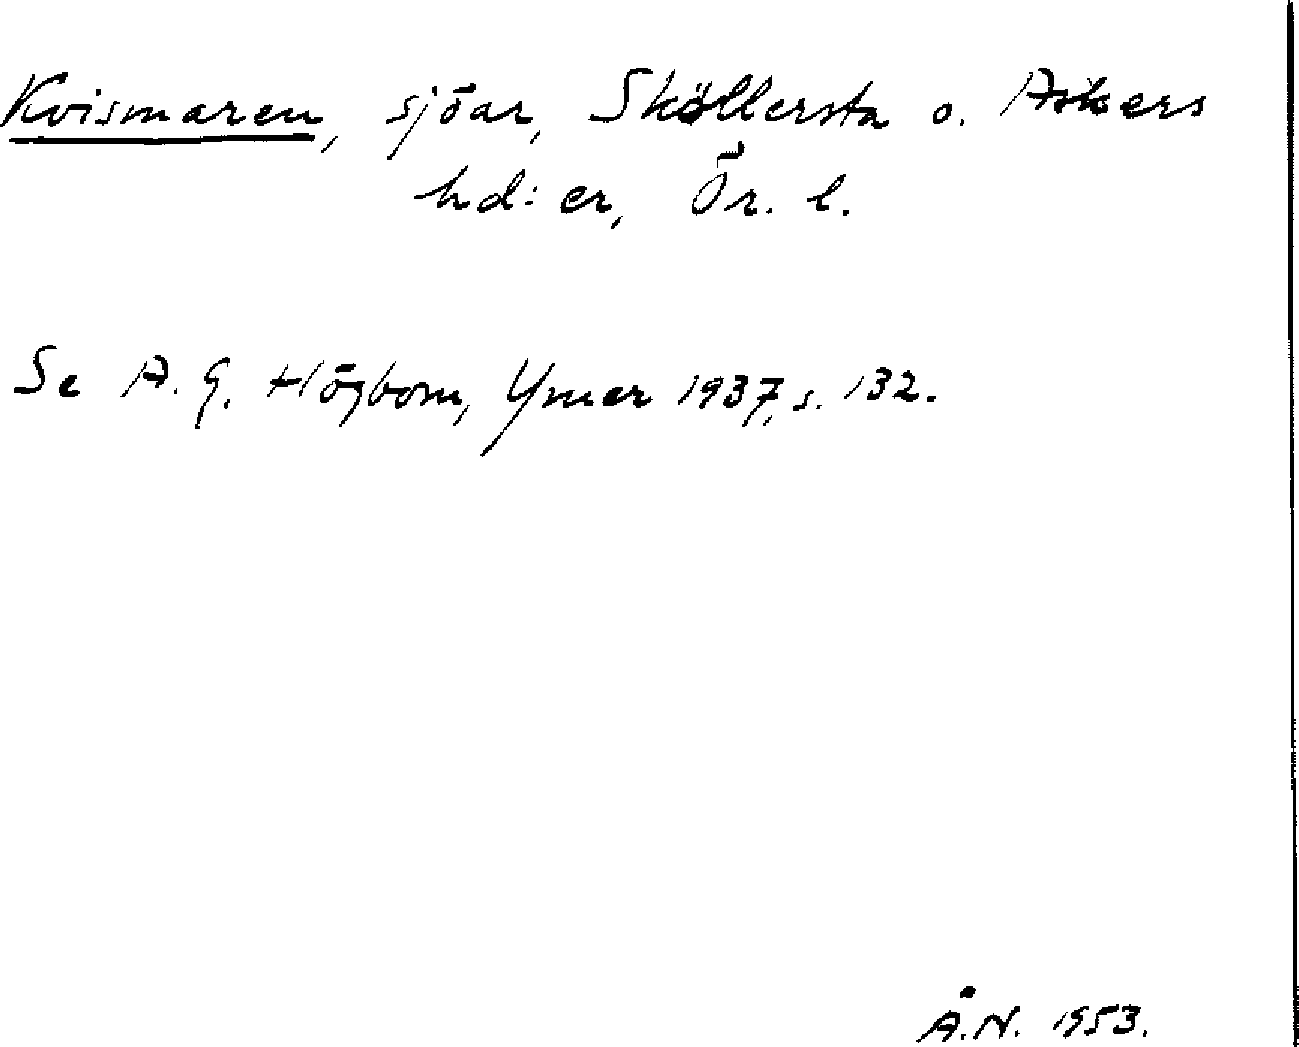 Kvismaren, sjöar, Sköllersta o. Askers
hd:er, Ör. l.
Se A. G. Högbom, Ymer 1937, s. 132.
Å.N. 1953.